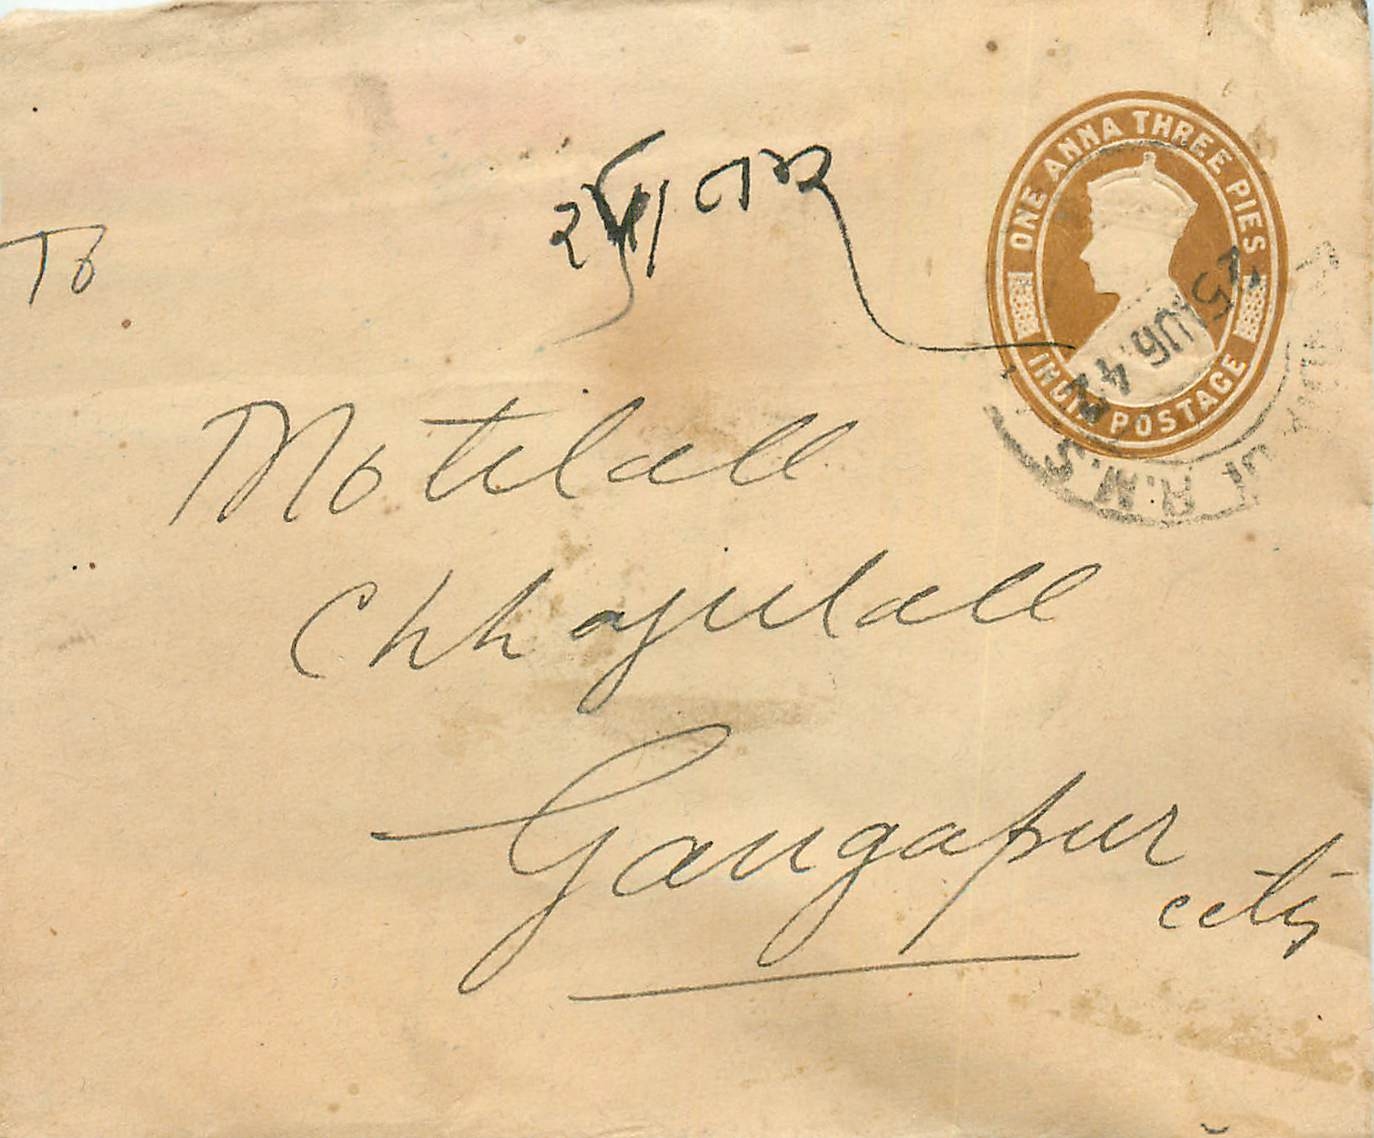 ONE ANNA THREE PIES
INDIA POSTAGE
25 AUG. 42
R.M.S.
To
Motilall
Chhajulall
Gangapur
city